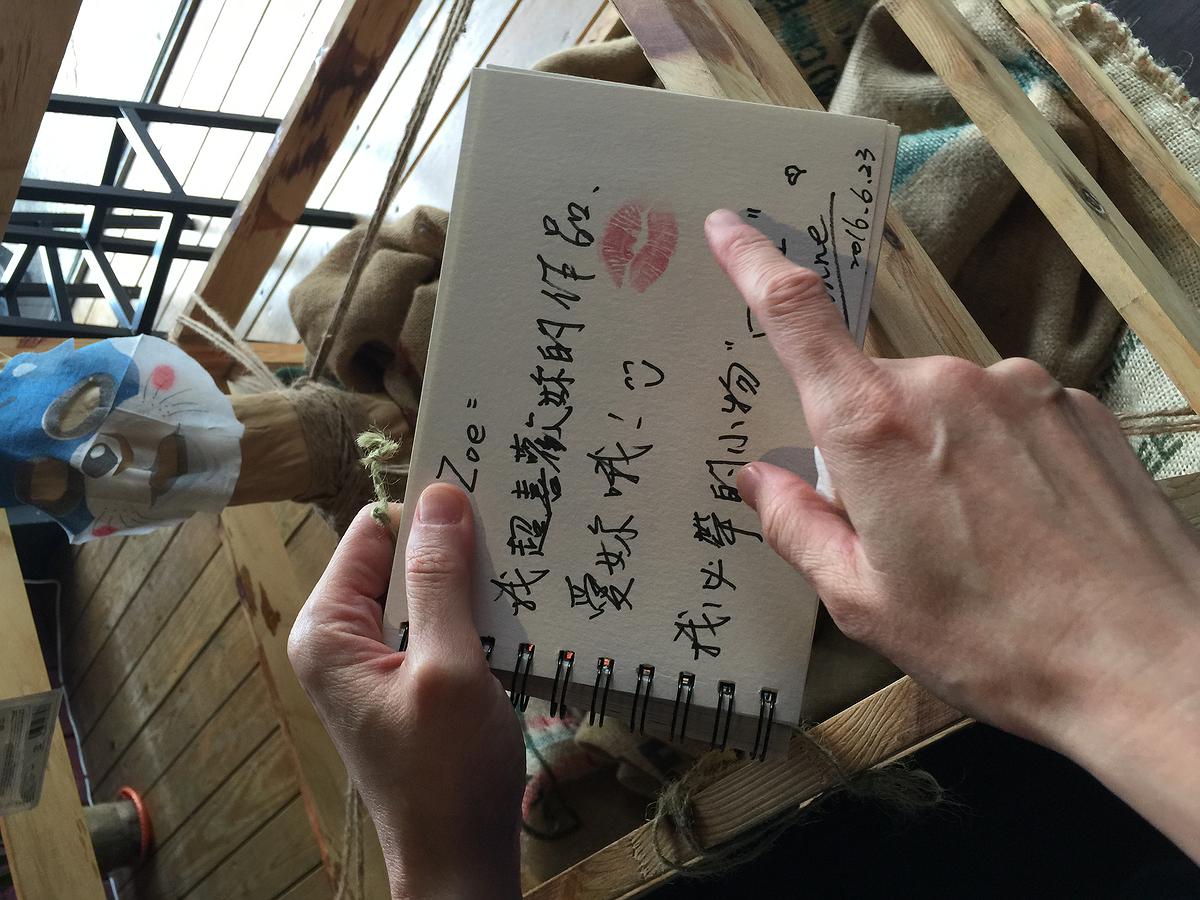 Zoe:
我超喜歡妳的作品、
愛妳哦!
我 的小物"
2016.6.23